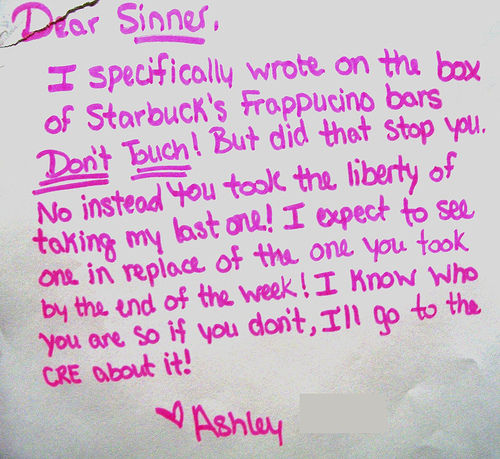 Dear Sinner,
I specifically wrote on the box
of Starbuck's Frappucino bars
Don't Touch! But did that stop you.
No instead you took the liberty of
taking my last one! I expect to see
one in replace of the one you took
by the end of the week! I know who
you are so if you don't, I'll go to the
CRE about it!
♥ Ashley